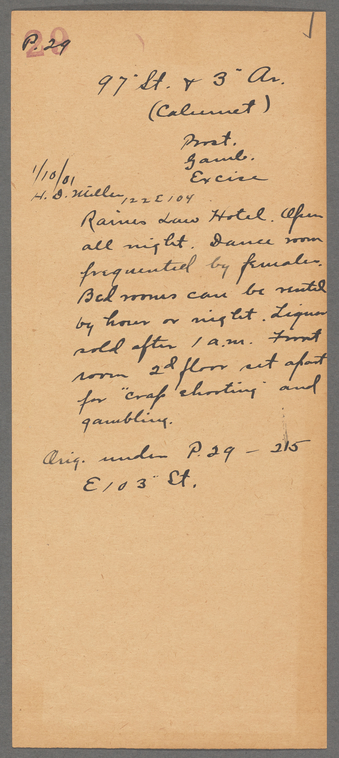 P. 29
29
97" St. & 3" Av.
(Calumet)
Prost.
Gamb.
Excise
1/10/01
H. D. Miller, 122 E 104
Raines Law Hotel. Open
all night. Dance room
frequented by females.
Bed rooms can be rented
by hour or night. Liquor
sold after 1 a.m. Front
room 2d floor set apart
for "crap shooting" and
gambling.
Orig. under P. 29 – 215
E 103" St.